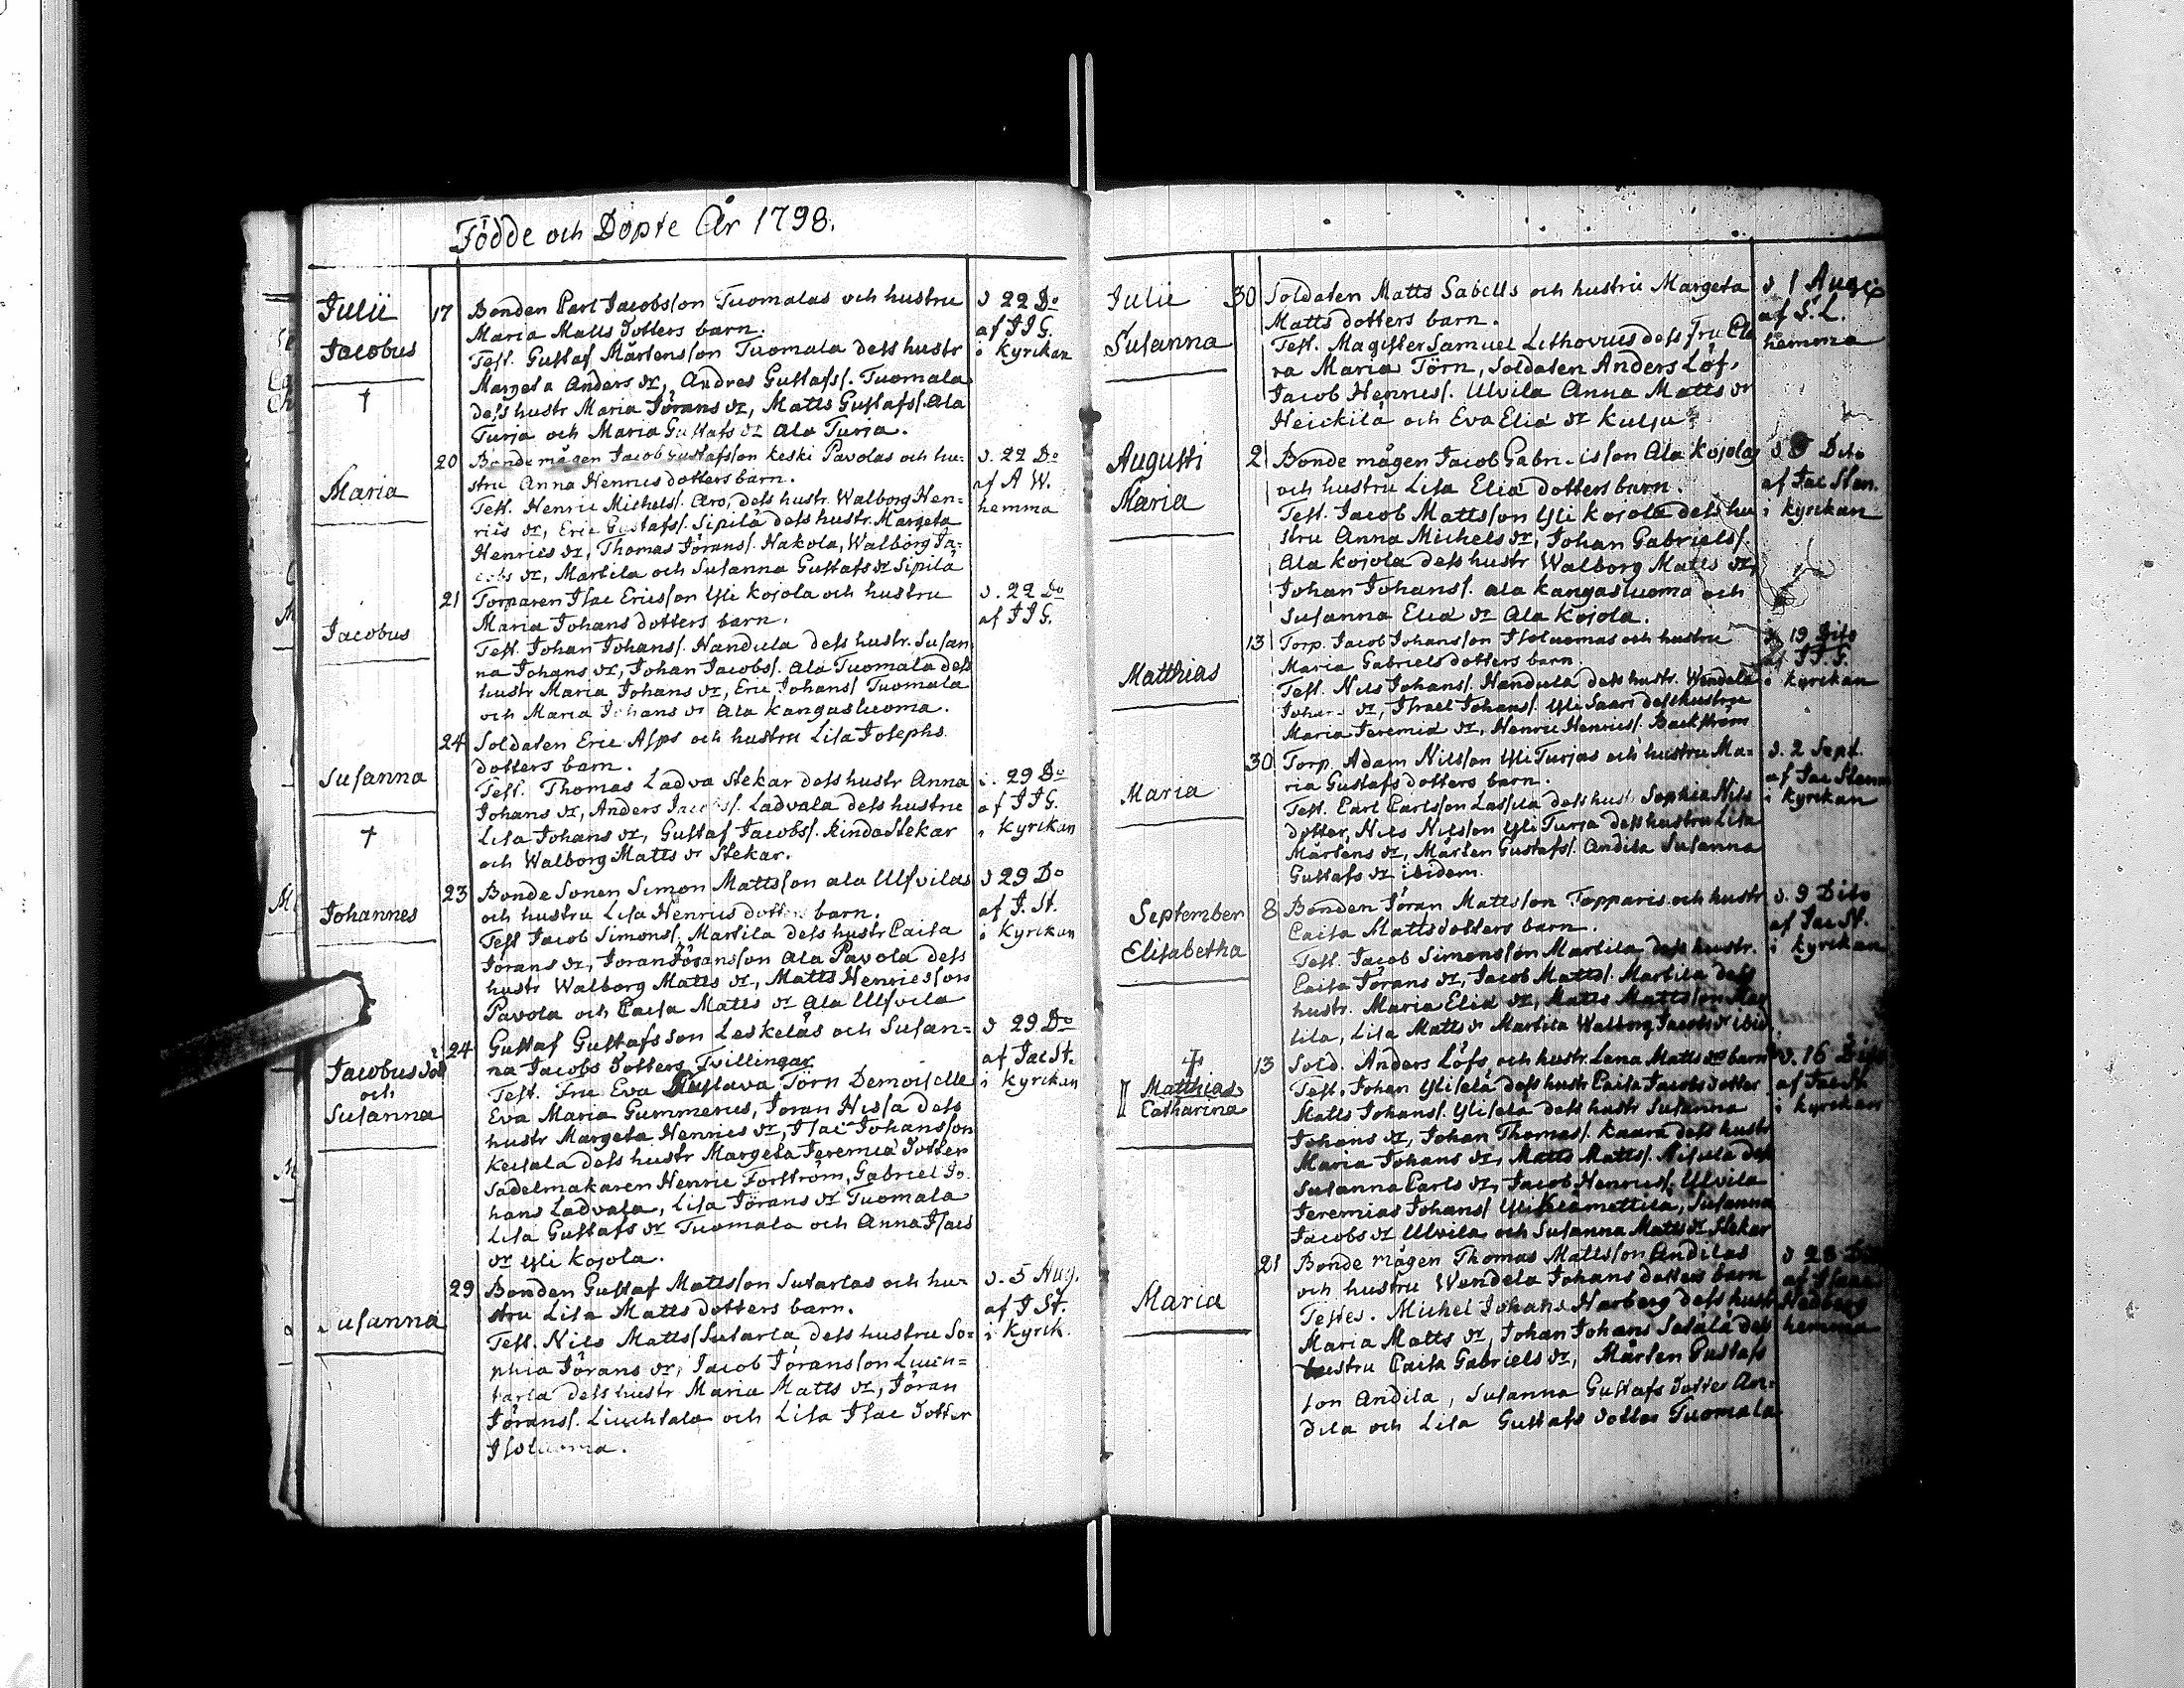 Födde och Döpte År 1798.
Julii 17 Bonden Carl Jacobsson Tuomalas och hustru d 22 Do
Jacobus Maria Matts dotters barn. af J J G.
Test. Gustaf Mårtensson Tuomala dess hustr i Kyrkan
Margeta Anders dr, Andres Gustafs/. Tuomala
† dess hustr Maria Jörans dr, Matts Gustafs/. Ala
Turja och Maria Gustafs dr Ala Turja.
20 Bonde mågen Jacob Gustafsson Keski Pavolas och hu- d. 22 Do
Maria stru Anna Henrics dotters barn. af A W.
Test. Henric Michels/. Aro, dess hustr. Walborg Hen= hemma
rics dr, Eric Gustafs/. Sipilä dess hustr. Margeta
Henrics dr, Thomas Jörans/. Nakola, Walborg Ja=
cobs dr, Martila och Susanna Gustafs dr Sipilä
21 Torparen Isac Ericsson Yli Kojola och hustru d. 22 Do
Jacobus Maria Johans dotters barn. af J J G.
Test. Johan Johans/. Handula dess hustr. Susan
na Johans dr, Johan Jacobs/. Ala Tuomala dess
hustr Maria Johans dr, Eric Johans/ Tuomala
och Maria Johans dr Ala Kangasluoma.
24 Soldaten Eric Asps och hustru Lisa Josephs
Susanna dotters barn.
Test. Thomas Ladva Stekar dess hustr Anna d. 29 Do
Johans dr, Anders Jacobs/. Ladvala dess hustru af J J G.
† Lisa Johans dr, Gustaf Jacobs/. Rinda Stekar i Kyrkan
och Walborg Matts dr Stekar.
23 Bonde Sonen Simon Mattsson ala Ulfvilas d 29 Do
Johannes och hustru Lisa Henrics dotters barn. af J. St.
Test Jacob Simons/. Martila dess hustr Caisa i Kyrkan
Jörans dr, Joran Joransson Ala Pavola dess
hustr Walborg Matts dr, Matts Henricsson
Pavola och Caisa Matts dr Ala Ulfvila
24 Gustaf Gustafsson Leskeläs och Susan= d 29 Do
Jacobus na Jacobs dotters Tvillingar af Jac St.
och Test. Fru Eva Gustava Törn Demoiselle i Kyrkan
Susanna Eva Maria Gummerus, Joran Hissa dess
hustr Margeta Henrics dr, Isac Johansson
Keisala dess hustr Margeta Jeremiæ dotter
Sadelmakaren Henric Forström, Gabriel Jo
hans Ladvala, Lisa Jörans dr Tuomala
Lisa Gustafs dr Tuomala och Anna Isacs
dr Yli Kojola.
29 Bonden Gustaf Mattsson Sutarlas och hu- d. 5 Aug.
Susanna stru Lisa Matts dotters barn. af J St.
Test. Nils Matts/ Sutarla dess hustru So= i Kyrk.
phia Jörans dr, Jacob Jöransson Luuh=
tarla dess hustr Maria Matts dr, Jöran
Jörans/. Liuchtala och Lisa Isac dotter
Isoluoma.
Julii 30 Soldaten Matts Sabells och hustru Margeta d 1 Aug
Susanna Matts dotters barn. af S. L.
Test. Magister Samuel Lithovius dess fru Cla hemma
ra Maria Törn, Soldaten Anders Löf,
Jacob Henrics/. Ulvila Anna Matts dr
Heickilä och Eva Eliæ dr Kulju
Augusti 2 Bonde mågen Jacob Gabrielsson Ala Kojolas d 5 Dito
Maria och hustru Lisa Eliæ dotters barn. af Jac Sten.
Test. Jacob Mattsson Yli Kojola dess hu i Kyrkan
stru Anna Michels dr, Johan Gabriels/.
Ala Kojola dess hustr Walborg Matts dr,
Johan Johans/. ala Kangasluoma och
Susanna Eliæ dr Ala Kojola.
13 Torp. Jacob Johansson Isoluomas och hustru d 19 Dito
Matthias Maria Gabriels dotters barn. af J J. G.
Test. Nils Johans/. Handula dess hustr. Wendela i Kyrkan
Johans dr, Israel Johans/. Yli Saari dess hustru
Maria Jeremiæ dr, Henric Henrics/. Backström
30 Torp. Adam Nilsson Yli Turjas och hustru Ma= d. 2 Sept.
Maria ria Gustafs dotters barn. af Jac Stenm
Test. Carl Carlsson Lassila dess hustr Sophia Nils i Kyrkan
dotter, Nils Nilsson Yli Turja dess hustru Lisa
Mårtens dr, Mårten Gustafs/. Andila Susanna
Gustafs dr ibidem.
September 8 Bonden Jöran Mattsson Topparis och hustr d. 9 Dito
Elisabetha Caisa Matts dotters barn. af Jac St.
Test. Jacob Simonsson Martila dess hustr. i Kyrkan
Caisa Jörans dr, Jacob Matts/. Martila dess
hustr. Maria Eliæ dr, Matts Mattsson Mar
tila, Lisa Matts dr Martila Walborg Jacobs dr ibid.
† 13 Sold. Anders Löfs och hustr. Lena Matts dr barn d. 16 Dito
Matthias Test. Johan Ylisela dess hustr Caisa Jacobs dotter af Jac St.
Catharina Matts Johans/. Ylisela dess hustr Susanna i Kyrkan
Johans dr, Johan Thomas/. Kaara dess hustr
Maria Johans dr, Matts Matts/. Nisula dess
Susanna Carls dr, Jacob Henrics/. Ulvila
Jeremias Johans/ Yli Kiämettilä, Susanna
Jacobs dr Ulvila och Susanna Matts dr Stekar
21 Bonde mågen Thomas Mattsson Andilas d 23
Maria och hustru Wendela Johans dotters barn
Testes. Michel Johans Harberg dess hustr Hedberg
Maria Matts dr, Johan Johans Sasala dess hemma
hustru Caisa Gabriels dr, Mårten Gustafs
son Andila, Susanna Gustafs dotter An=
dila och Lisa Gustafs dotter Tuomala